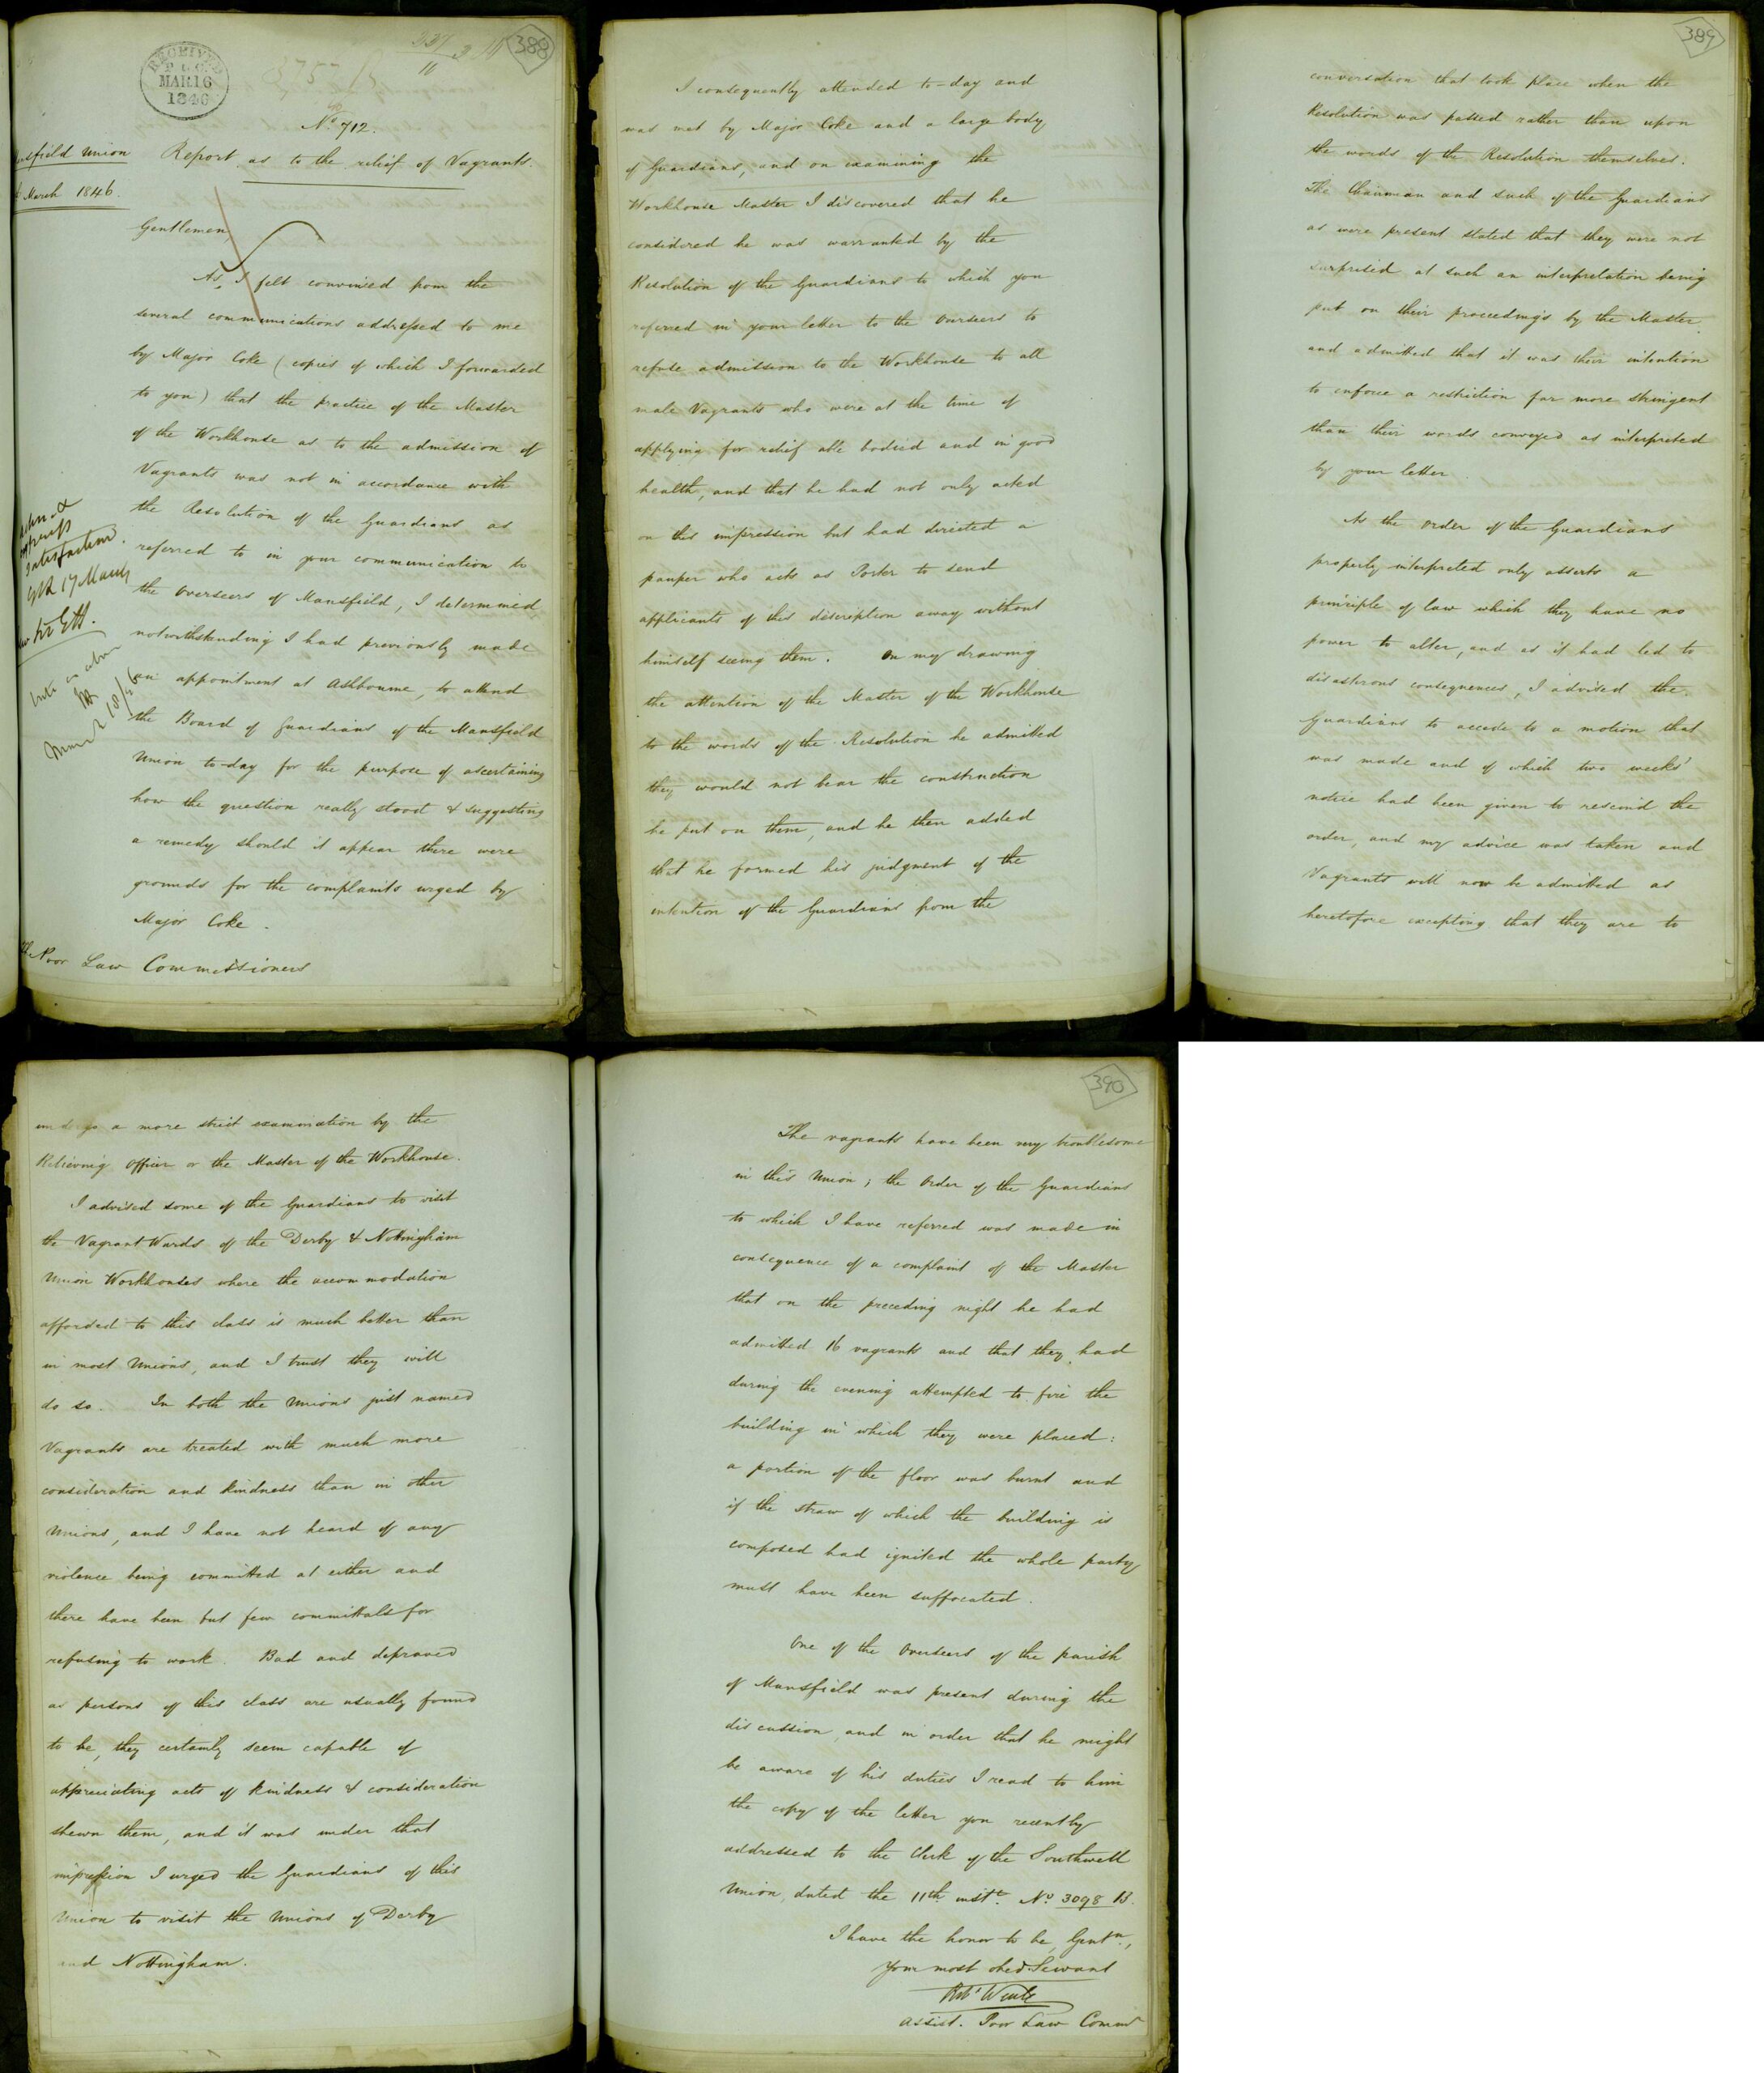 388
RECEIVED
P.L.C.
MAR 16
1846
3757 B
No. 712.
Mansfield Union
Report as to the relief of Vagrants.
March 1846.
Gentlemen
As I felt convinced from the
several communications addressed to me
by Major Coke (copies of which I forwarded
to you) that the practice of the Master
of the Workhouse as to the admission of
Vagrants was not in accordance with
the Resolution of the Guardians as
referred to in your communication to
the Overseers of Mansfield, I determined,
notwithstanding I had previously made
an appointment at Ashbourne, to attend
the Board of Guardians of the Mansfield
Union to-day for the purpose of ascertaining
how the question really stood & suggesting
a remedy should it appear there were
grounds for the complaints urged by
Major Coke.
The Poor Law Commissioners
express
satisfaction.
17 March
March 18/46
I consequently attended to-day and
was met by Major Coke and a large body
of Guardians, and on examining the
Workhouse Master I discovered that he
considered he was warranted by the
Resolution of the Guardians to which you
referred in your letter to the Overseers to
refuse admission to the Workhouse to all
male Vagrants who were at the time of
applying for relief able bodied and in good
health, and that he had not only acted
on this impression but had directed a
pauper who acts as Porter to send
applicants of this description away without
himself seeing them. On my drawing
the attention of the Master of the Workhouse
to the words of the Resolution he admitted
they would not bear the construction
he put on them, and he then added
that he formed his judgment of the
intention of the Guardians from the
389
conversation that took place when the
Resolution was passed rather than upon
the words of the Resolution themselves.
The Chairman and such of the Guardians
as were present stated that they were not
surprised at such an interpretation being
put on their proceedings by the Master
and admitted that it was their intention
to enforce a restriction far more stringent
than their words conveyed as interpreted
by your letter.
As the order of the Guardians
properly interpreted only asserts a
principle of law which they have no
power to alter, and as it had led to
disasterous consequences, I advised the
Guardians to accede to a motion that
was made and of which two weeks'
notice had been given to rescind the
order, and my advice was taken and
Vagrants will now be admitted as
heretofore excepting that they are to
undergo a more strict examination by the
Relieving Officer or the Master of the Workhouse.
I advised some of the Guardians to visit
the Vagrant Wards of the Derby & Nottingham
Union Workhouses where the accommodation
afforded to this class is much better than
in most Unions, and I trust they will
do so. In both the Unions just named
Vagrants are treated with much more
consideration and kindness than in other
Unions, and I have not heard of any
violence being committed at either and
there have been but few committals for
refusing to work. Bad and depraved
as persons of this class are usually found
to be, they certainly seem capable of
appreciating acts of kindness & consideration
shewn them, and it was under that
impression I urged the Guardians of this
Union to visit the Unions of Derby
and Nottingham.
390
The vagrants have been very troublesome
in this Union; the Order of the Guardians
to which I have referred was made in
consequence of a complaint of the Master
that on the preceding night he had
admitted 16 vagrants and that they had
during the evening attempted to fire the
building in which they were placed:
a portion of the floor was burnt and
if the straw of which the building is
composed had ignited the whole party
must have been suffocated.
One of the Overseers of the parish
of Mansfield was present during the
discussion, and in order that he might
be aware of his duties I read to him
the copy of the letter you recently
addressed to the Clerk of the Southwell
Union, dated the 11th instt. No. 3098 B.
I have the honor to be, Gentn,
Your most obed. Servant
Robt Weale
Assist. Poor Law Commr